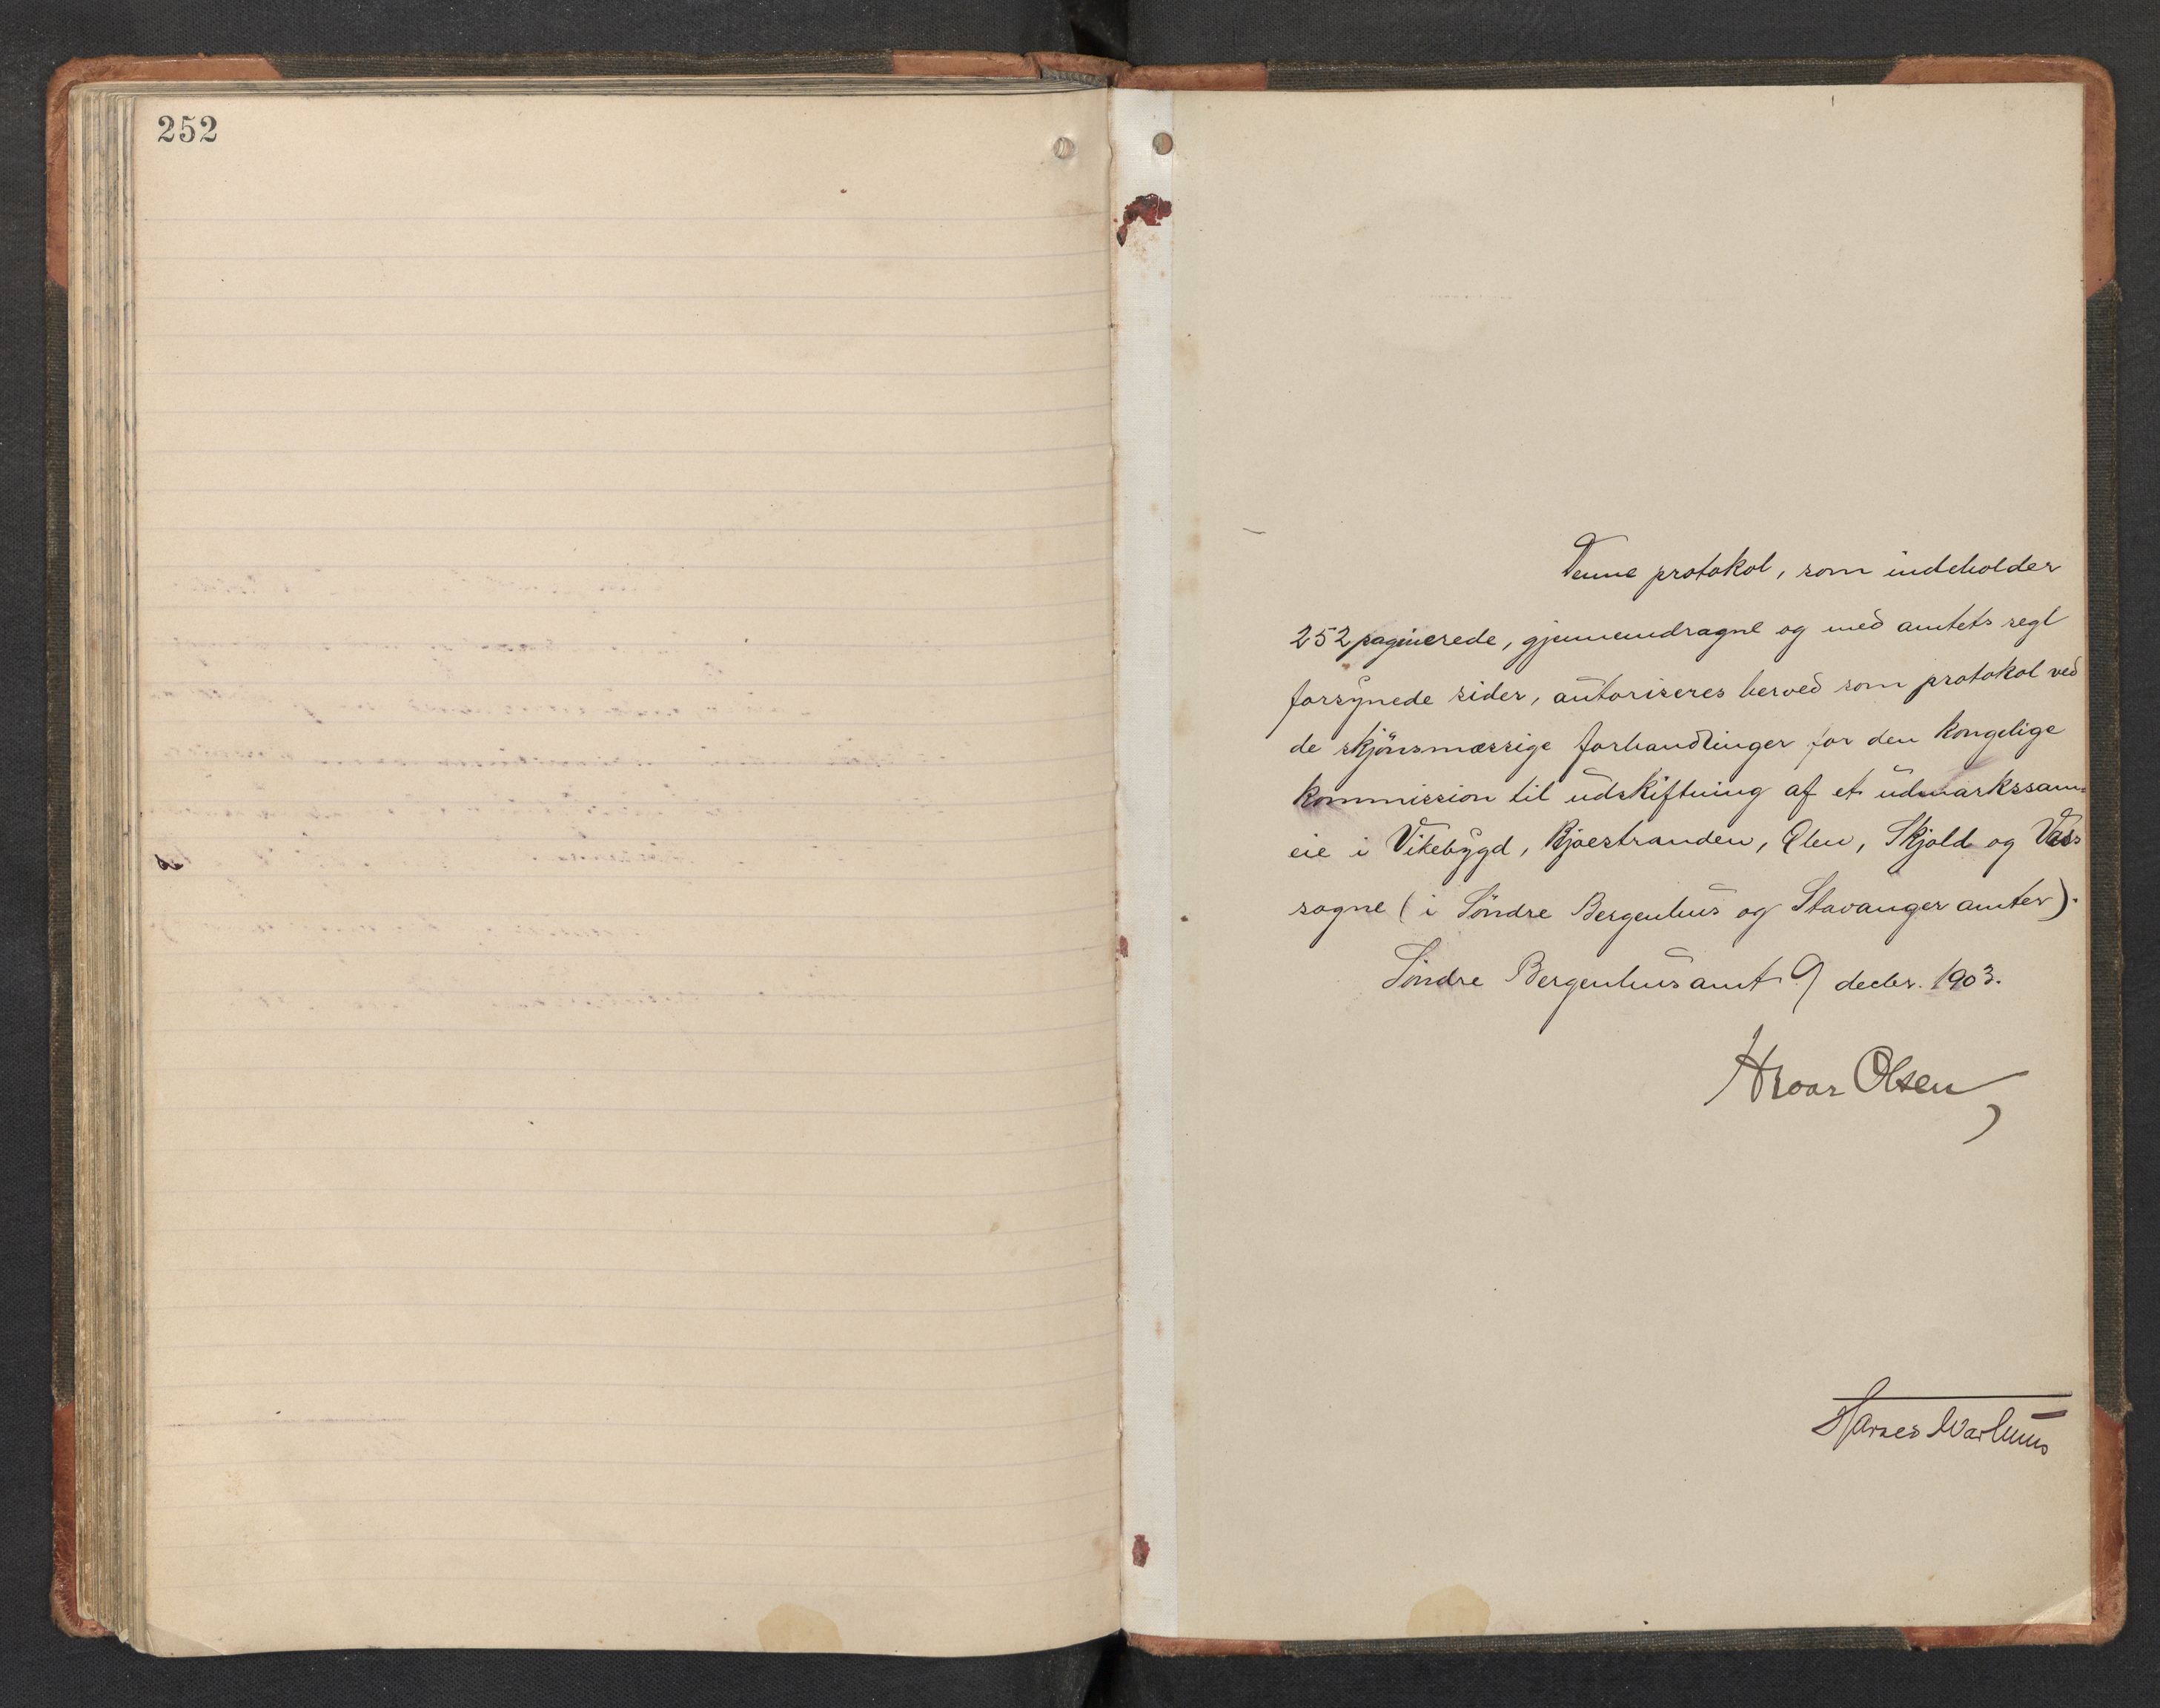 252
Denne protokol, som indeholder
252 paginerede, gjennemdragne og med amtets segl
forsynede sider, autoriseres herved som protokol ved
de skjönsmæssige forhandlinger for den kongelige
kommission til udskiftning af et udmarkssam=
eie i Vikebygd, Bjoestranden, Ølen, Skjold og Vats
sogne (i Söndre Bergenhus og Stavanger amter).
Söndre Bergenhus amt 9 decbr. 1903.
Hroar Olsen